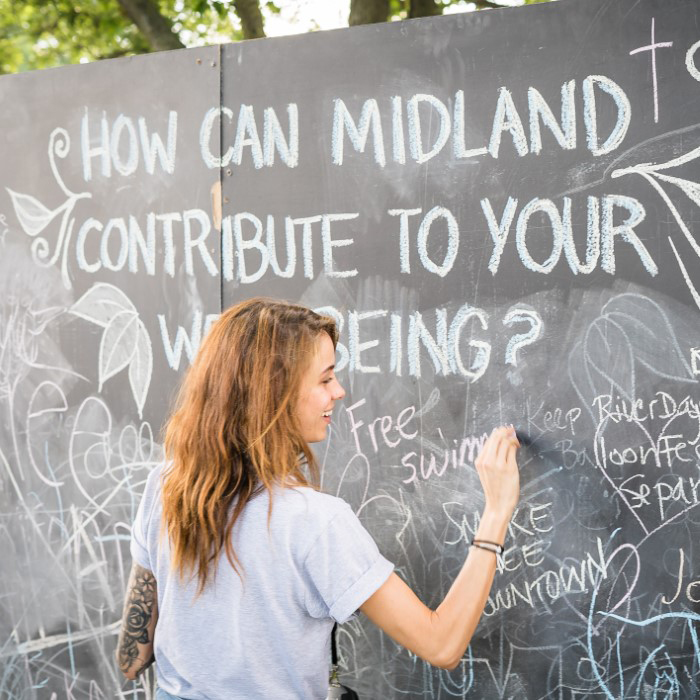 HOW CAN MIDLAND
CONTRIBUTE TO YOUR
BEING?
Free
swimm
Keep RiverDay
BalloonFe
Separ
SMOKE
Jo